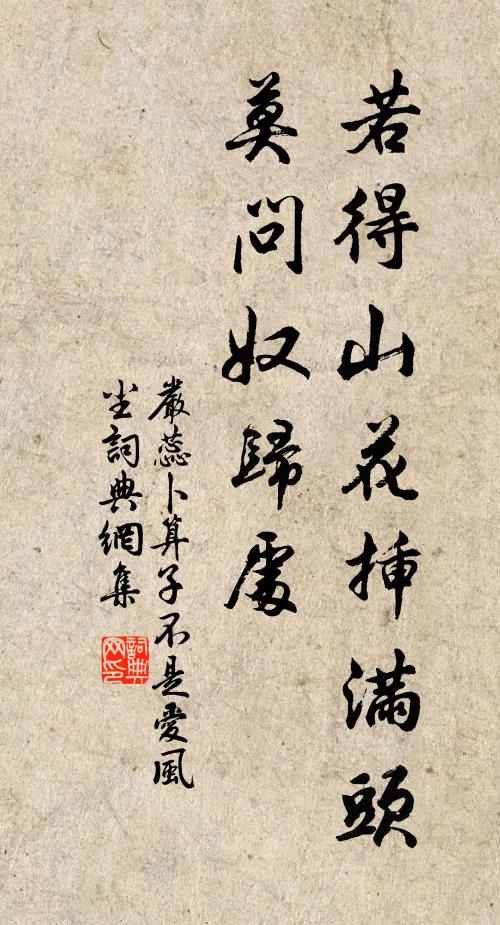 若得山花挿滿頭
莫問奴歸處
嚴蕊卜算子不是愛風
尘詞典網集
詞典
网印